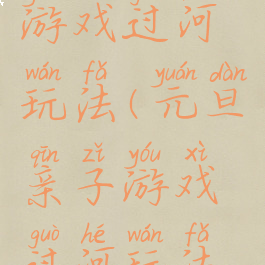 游戏过河
wán fǎ yuán dàn
玩法(元旦
qīn zǐ yóu xì
亲子游戏
guò hé wán fǎ
过河玩法